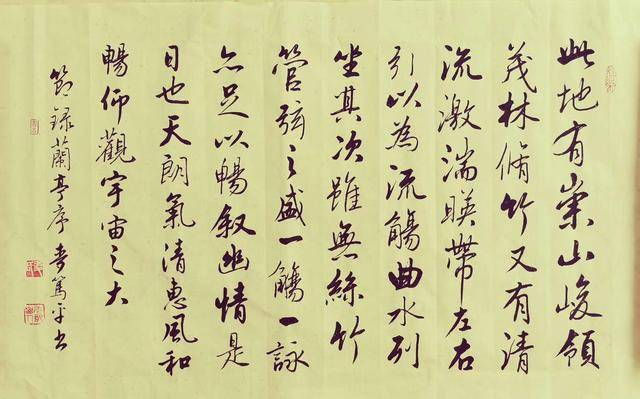 此地有崇山峻領
茂林脩竹又有清
流激湍暎帶左右
引以為流觴曲水列
坐其次雖無絲竹
管弦之盛一觴一詠
亦足以暢叙幽情是
日也天朗氣清惠風和
暢仰觀宇宙之大
節録蘭亭序 篤平书